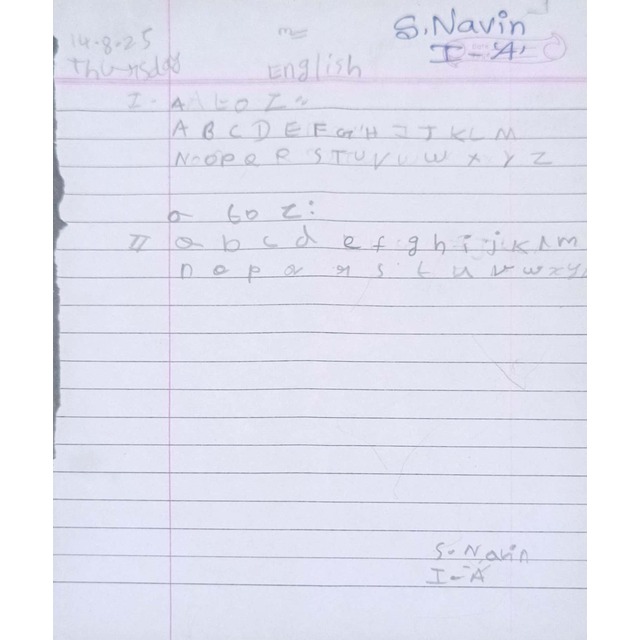 S. Navin
I - A
14-8-25
Thursday
English
I. A to Z:
A B C D E F G H I J K L M
N O P Q R S T U V U W X Y Z
a to z:
II a b c d e f g h i j k l m
n o p q r s t u v w x y
S. Navin
I - A